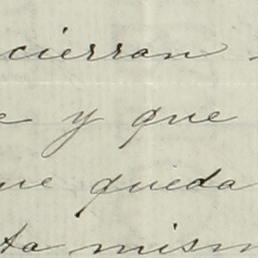 cierran
e y que
ue queda
ta mism